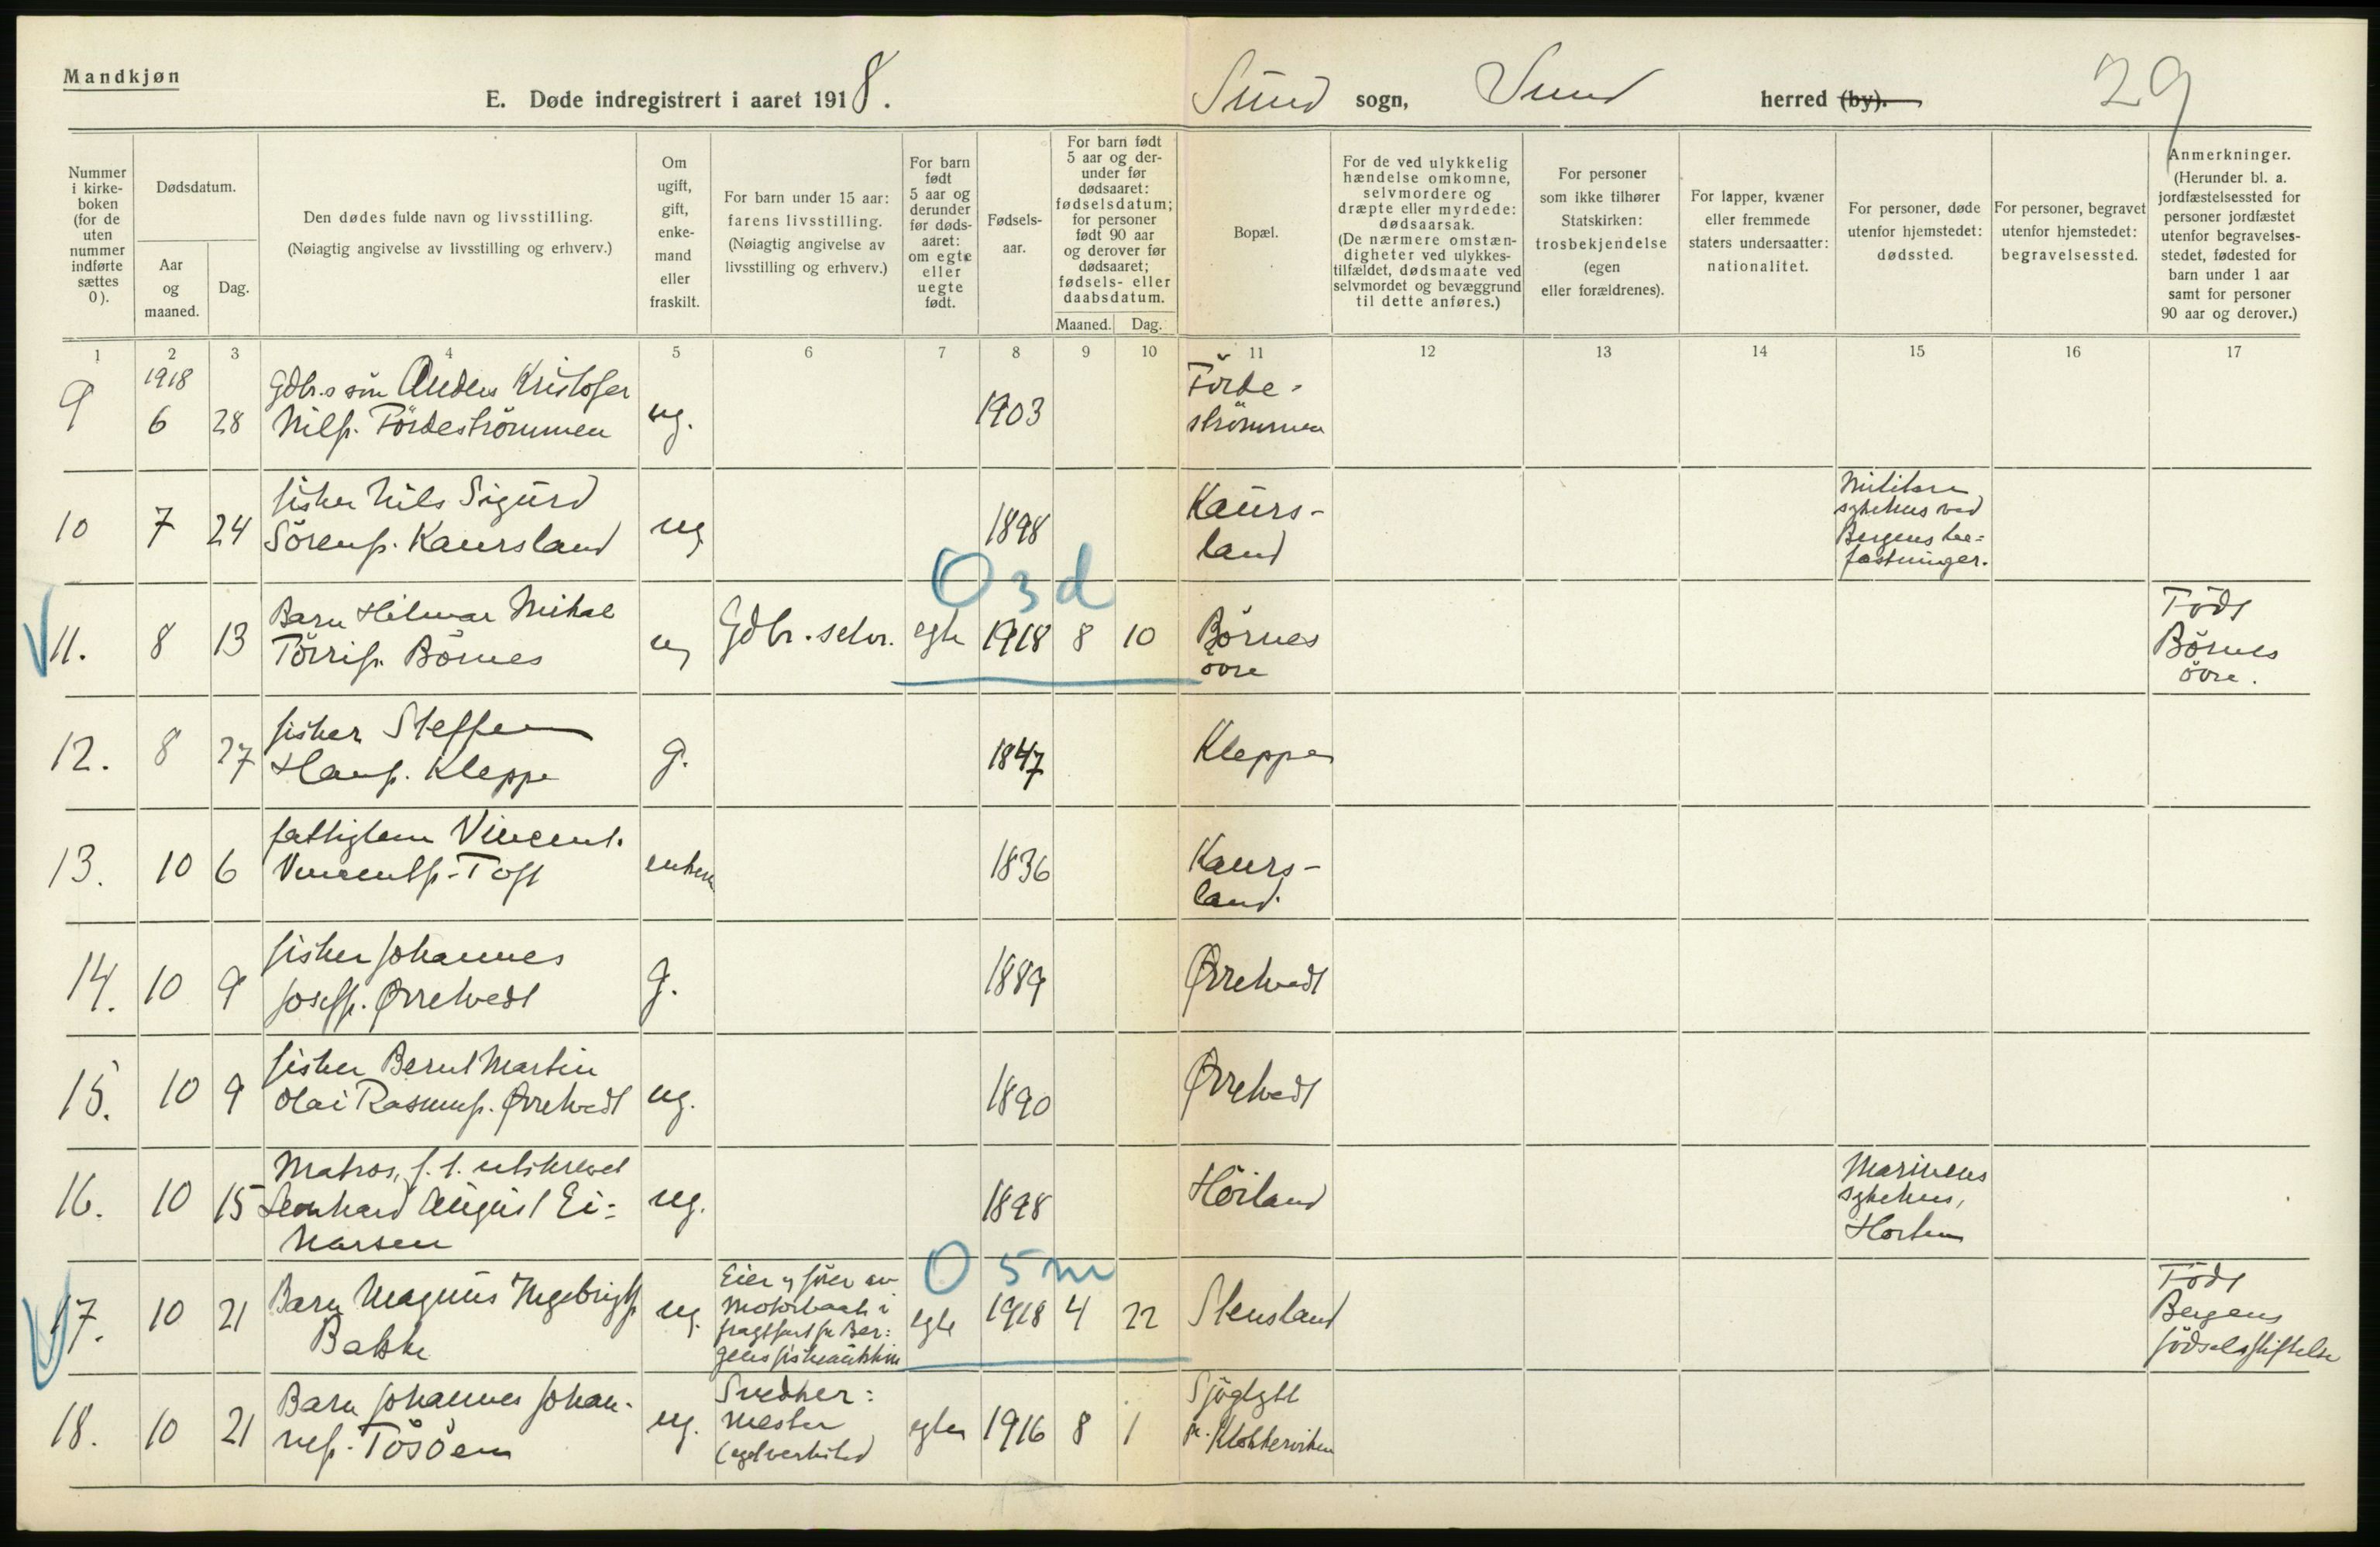 Mandkjøn
E. Døde indregistrert i aaret 1918.
Sund sogn, Sund herred (by).
29
Nummer i kirke-boken (for de uten nummer indførte sættes 0).
Dødsdatum.
Aar og maaned.
Dag.
Den dødes fulde navn og livsstilling.
(Nøiagtig angivelse av livsstilling og erhverv.)
Om ugift, gift, enke-mand eller fraskilt.
For barn under 15 aar: farens livsstilling.
(Nøiagtig angivelse av livsstilling og erhverv.)
For barn født 5 aar og derunder før døds-aaret: om egte eller uegte født.
Fødsels-aar.
For barn født 5 aar og der-under før dødsaaret: fødselsdatum; for personer født 90 aar og derover før dødsaaret; fødsels- eller daabsdatum.
Maaned.
Dag.
Bopæl.
For de ved ulykkelig hændelse omkomne, selvmordere og dræpte eller myrdede: dødsaarsak.
(De nærmere omstæn-digheter ved ulykkes-tilfældet, dødsmaate ved selvmordet og bevæggrund til dette anføres.)
For personer som ikke tilhører Statskirken: trosbekjendelse (egen eller forældrenes).
For lapper, kvæner eller fremmede staters undersaatter: nationalitet.
For personer, døde utenfor hjemstedet: dødssted.
For personer, begravet utenfor hjemstedet: begravelsessted.
Anmerkninger.
(Herunder bl. a. jordfæstelsessted for personer jordfæstet utenfor begravelses-stedet, fødested for barn under 1 aar samt for personer 90 aar og derover.)
1 2 3 4 5 6 7 8 9 10 11 12 13 14 15 16 17
1918
9 6 28 Gdbr.s søn Anders Kristofer
Nilss. Fördeströmmen ug. 1903 Förde-
strömmen
10 7 24 fisker Nils Sigurd
Sörens. Kaursland ug 1898 Kaurs-
land
Militære
sykehus ved
Bergens be-
fæstninger.
O 3d
11. 8 13 Barn Hilmar Mikal
Törris. Börnes u Gdbr. selv. egte 1918 8 10 Börnes
övre
Född
Börnes
övre.
12. 8 27 fisker Steffen
Hans. Kleppe g. 1847 Kleppe
13. 10 6 fattiglem Vincent
Vincents. Toft enkem 1836 Kaurs-
land.
14. 10 9 fisker Johannes
Josefs. Ørretvedt g. 1889 Ørretvedt
15. 10 9 fisker Bernt Martin
Olai Rasmus. Ørretvedt ug. 1890 Ørretvedt
16. 10 15 Matros, f. t. utskrevet
Leonhard August Ei-
narsen ug. 1898 Höiland
Marinens
sykehus,
Horten
O 5 m
17. 10 21 Barn Magnus Ingebrigts.
Bakke ug.
Eier og förer av
motorbaat i
fragtfart for Ber-
gens fiske
egte 1918 4 22 Stensland
Född
Bergens
födselsstiftelse
18. 10 21 Barn Johannes Johan-
nes. Tösöen ug.
Snedker-
mester
(eget verksted)
egte 1916 8 1
Sjöglytt
pr. Klokkerviken